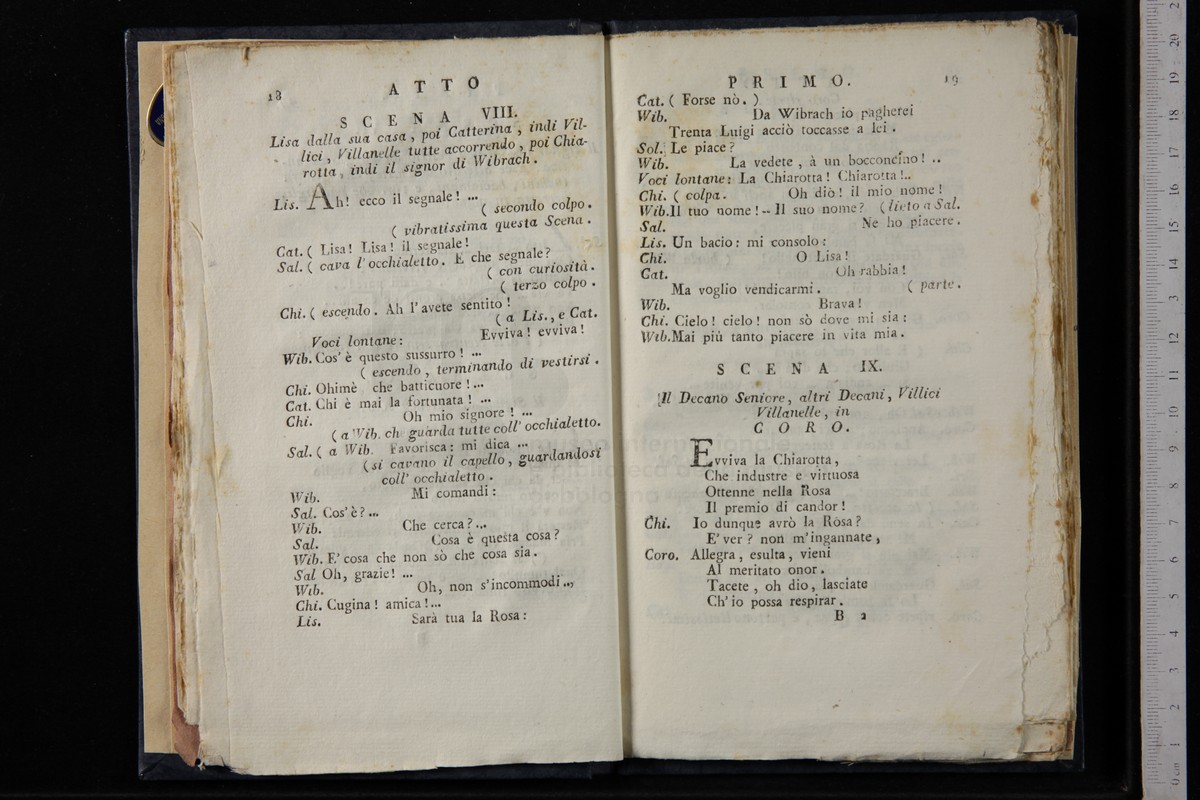 18
A T T O
S C E N A VIII.
Lisa dalla sua casa, poi Catterina, indi Vil-
lici, Villanelle tutte accorrendo, poi Chia-
rotta, indi il signor di Wibrach.
Lis. Ah! ecco il segnale! ...
( secondo colpo.
( vibratissima questa Scena.
Cat. ( Lisa! Lisa! il segnale!
Sal. ( cava l'occhialetto. E che segnale?
( con curiosità.
( terzo colpo.
Chi. ( escendo. Ah l'avete sentito!
( a Lis., e Cat.
Voci lontane: Evviva! evviva!
Wib. Cos'è questo sussurro! ...
( escendo, terminando di vestirsi.
Chi. Ohimè che batticuore!...
Cat. Chi è mai la fortunata! ...
Chi. Oh mio signore! ...
( a Wib. ch guarda tutte coll' occhialetto.
Sal. ( a Wib. Favorisca: mi dica ...
( si cavano il capello, guardandosi
coll' occhialetto.
Wib. Mi comandi:
Sal. Cos'è?...
Wib. Che cerca?...
Sal. Cosa è questa cosa?
Wib. E' cosa che non sò che cosa sia.
Sal Oh, grazie! ...
Wib. Oh, non s'incommodi...
Chi. Cugina! amica!...
Lis. Sarà tua la Rosa:
P R I M O. 19
Cat. ( Forse nò. )
Wib. Da Wibrach io pagherei
Trenta Luigi acciò toccasse a lei.
Sol. Le piace?
Wib. La vedete, à un bocconcino! ..
Voci lontane: La Chiarotta! Chiarotta!..
Chi. ( colpa. Oh diò! il mio nome!
Wib. Il tuo nome! -- Il suo nome? ( lieto a Sal.
Sal. Ne ho piacere.
Lis. Un bacio: mi consolo:
Chi. O Lisa!
Cat. Oh rabbia!
Ma voglio vendicarmi. ( parte.
Wib. Brava!
Chi. Cielo! cielo! non sò dove mi sia:
Wib. Mai più tanto piacere in vita mia.
S C E N A IX.
Il Decano Seniore, altri Decani, Villici
Villanelle, in
C O R O.
Evviva la Chiarotta,
Che industre e virtuosa
Ottenne nella Rosa
Il premio di candor!
Chi. Io dunque avrò la Rosa?
E' ver? non m'ingannate,
Coro. Allegra, esulta, vieni
Al meritato onor.
Tacete, oh dio, lasciate
Ch'io possa respirar.
B 2